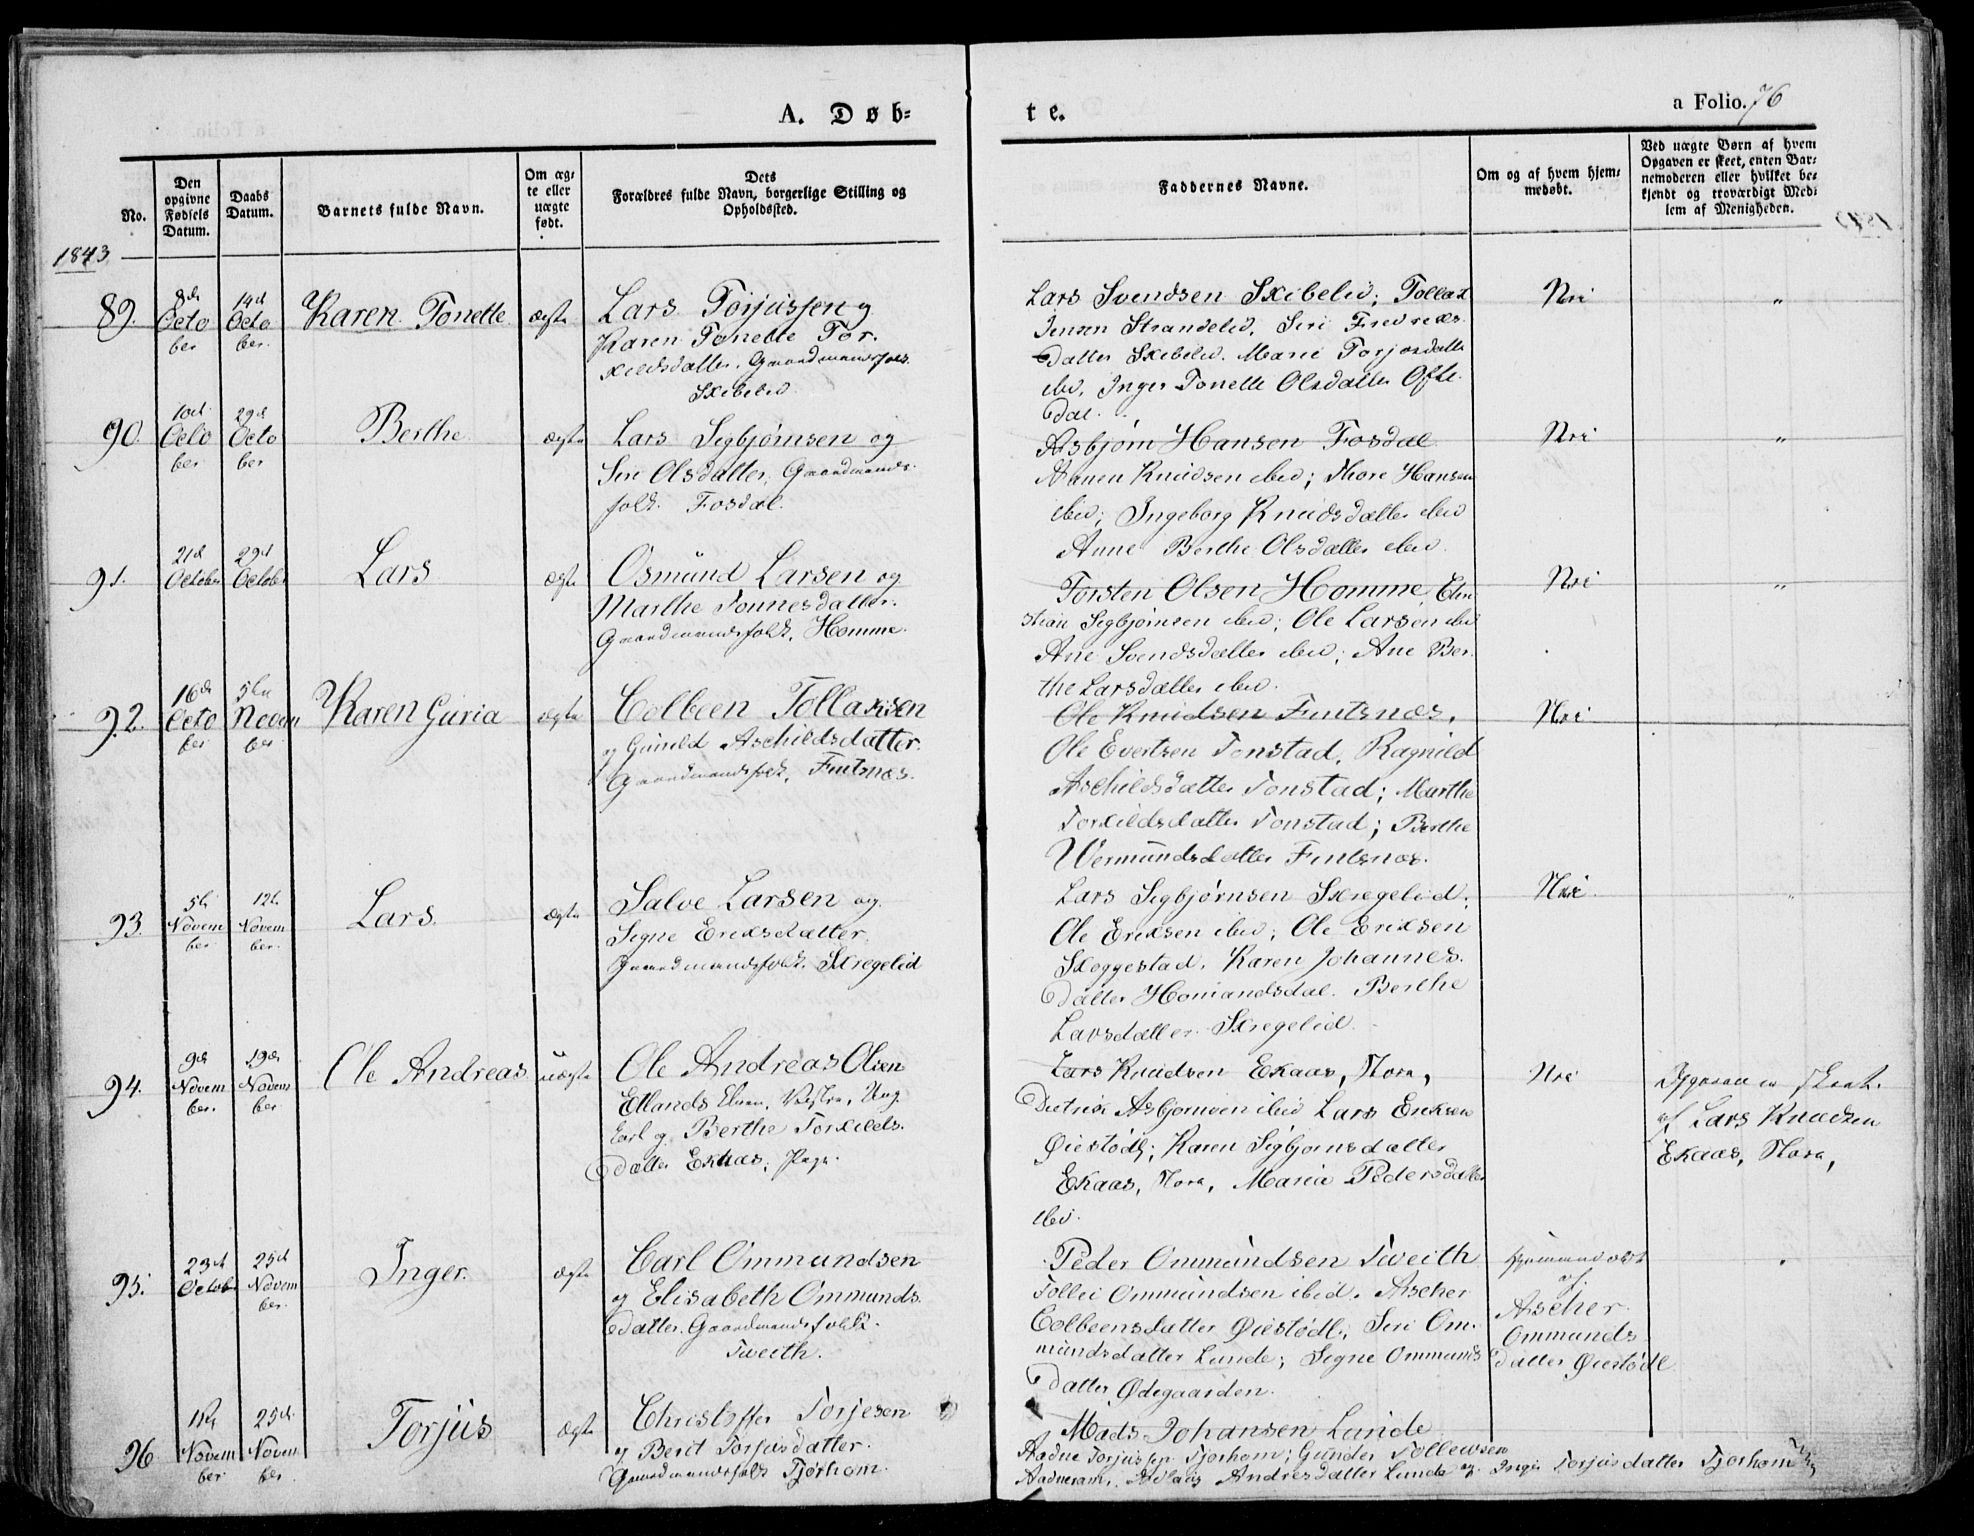 A. Døb-
te.
a Folio. 76
No.
Den opgivne Fødsels Datum.
Daabs Datum.
Barnets fulde Navn.
Om ægte eller uægte født.
Dets Forældres fulde Navn, borgerlige Stilling og Opholdssted.
Faddernes Navne.
Om og af hvem hjemmedøbt.
Ved uægte Børn af hvem Opgaven er skeet, enten Barnemoderen eller hvilket bekjendt og troværdigt Medlem af Menigheden.
1843
89.
8de October
14d October
Karen Tonette
ægte
Lars Torjussen og
Karen Tonette Tor-
kildsdatter. Gaardmandsfolk
Skibelid.
Lars Svendsen Skibelid; Tollak
Jensen Strandelid. Siri Fredriks-
datter Skibelid. Marie Torjosdatte
ibid. Inger Tonette Olsdatter Ofte-
dal.
Nei
"
90.
10d October
29d October
Berthe
ægte
Lars Segbjørnsen og
Siri Olsdatter, Gaardmands-
folk. Fosdal.
Asbjørn Hansen Fosdal
Aanen Knudsen ibid; Thore Hansen
ibid; Ingeborg Knudsdatter ibid
Anne Berthe Olsdatter ibid.
Nei
"
91.
21d October
29d October
Lars
ægte
Osmund Larsen og
Marthe Tonnesdatter.
Gaardmandsfolk, Homme.
Torsten Olsen Homme,
Segbjørnsen ibid; Ole Larsen ibid
Ane Svendsdatter ibid; Ane Ber-
the Larsdatter ibid.
Nei
"
92.
16d October
5te November
Karen Guria
ægte
Colbeen Tollaksen
og Gunild Aschildsdatter.
Gaardmandsfolk, Fintsnæs.
Ole Knudsen Fintsnæs.
Ole Evertsen Tonstad, Ragnild
Aschildsdatter Tonstad; Marthe
Torkildsdatter Tonstad; Berthe
Wermundsdatter Fintsnæs.
Nei
"
93.
5te November
12te November
Lars.
ægte
Salve Larsen og
Segne Eriksdatter.
Gaardmandsfolk. Skregelid
Lars Segbjørnsen Skregelid;
Ole Eriksen ibid; Ole Eriksen
Skoggestad. Karen Johannes-
datter Homandsdal. Berthe
Larsdatter Skregelid.
Nei
"
94.
9de November
19de November
Ole Andreas
uægte
Ole Andreas Olsen
Etlands Vestre, Ung-
karl og Berthe Torkilds-
datter Ekaas, Pige.
Lars Knudsen Ekaas, Stora,
Dietrik Asbjørnsen ibid Lars Eriksen
Øiestødl; Karen Sigbjørnsdatter
Ekaas, Stora, Maria Pedersdatter
ibid.
Nei
Opgaven er skeet
af Lars Knudsen
Ekaas, Stora,
95.
23d October
25d November
Inger.
ægte
Carl Ommundsen
og Elisabeth Ommunds-
datter. Gaardmandsfolk.
Tveith.
Peder Ommundsen Tveith
Tollei Ommundsen ibid. Ascher
Colbeensdatter Øiestødl; Siri Om-
mundsdatter Lunde; Segne Ommunds
datter Ødegaarden.
Hjemmedøbt
af
Ascher
Ommunds
datter Øiestødl
"
96
11te November
25de November
Torjus
ægte
Christoffer Torjesen
og Berit Torjusdatter.
Gaardmandsfolk Tjørhom.
Mads Johansen Lunde
Aadne Torjussen Tjorhom; Gunder Tollevsen
Aadneram, Andresdatter Lunde og Inger Torjusdatter Tjorhom